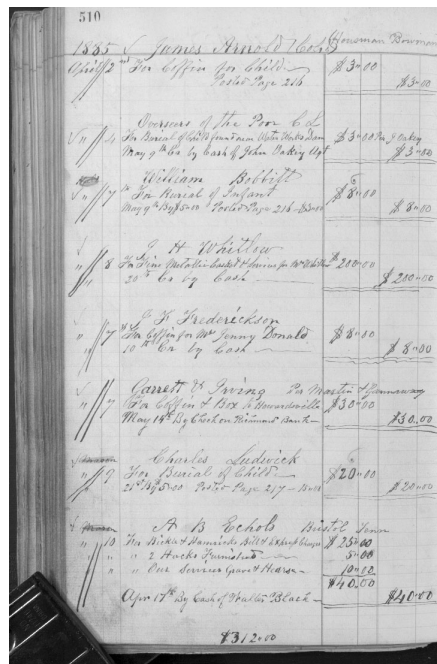 510
1885 James Arnold (Cold) Houseman Bowman
April 2nd For Coffin for Child $3.00
Posted Page 216 $3.00
Overseers of the Poor C.L.
" 4 For Burial of Child found near Water Works Dam $3.00 Per J Oakey
May 9th Cr by Cash of John Oakey Agt $3.00
William Bobbitt
" 7th For Burial of Infant $8.00
May 9th By $5.00 Posted Page 216 $8.00
J H Whitlow
" 8 For Fine Metallic Casket & Services for Mr Whitlow $200.00
" 20th Cr by Cash $200.00
J K Frederickson
" 7th For Coffin for Mrs Jenny Donald $8.00
" 10th Cr by Cash $8.00
Garrett & Irving Per Martin &
" 9 For Coffin & Box to Howardsville $30.00
May 14th By Check on Richmond Bank $30.00
Charles Ludwick
" 9 For Burial of Child $20.00
21st By 5.00 Posted Page 217 $20.00
A B Echols Bristol Tenn
" 10 For Bickle & Hamricks Bill & Express Charges $25.00
" " 2 Hacks Furnished 5.00
" " Our Services Grave & Hearse 10.00
$40.00
Apr 17th By Cash of Walter Black $40.00
$312.00